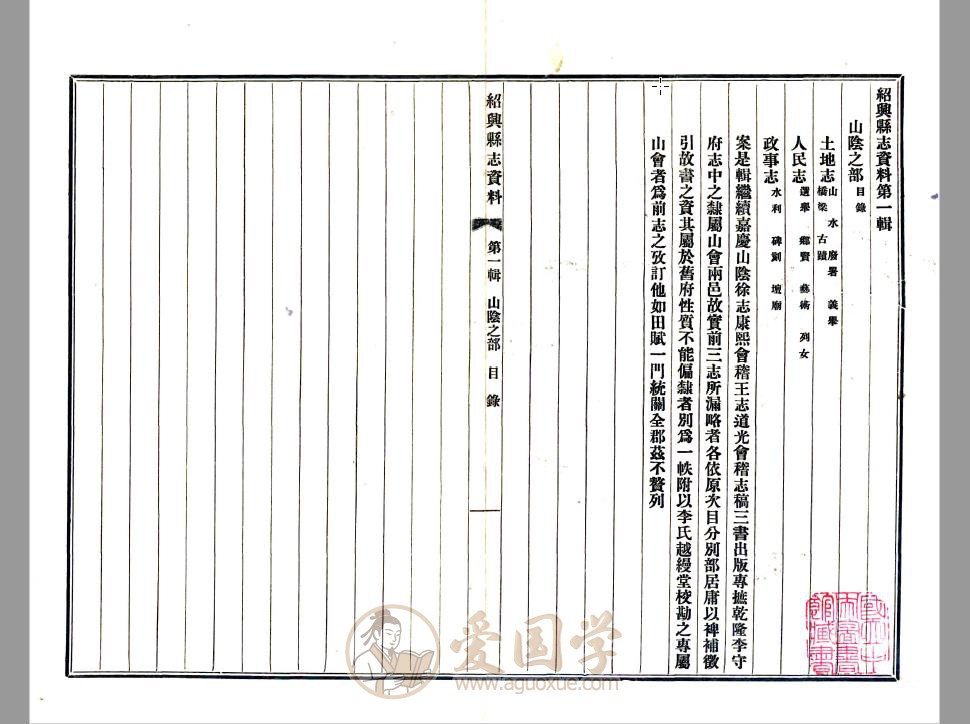 紹興縣志資料第一輯
山陰之部 目錄
土地志 山 水 廨署 義舉
橋梁 古蹟
人民志 選舉 鄉賢 藝術 列女
政事志 水利 碑劖 壇廟
案是輯繼續嘉慶山陰徐志康熙會稽王志道光會稽志稿三書出版專摭乾隆李守
府志中之隸屬山會兩邑故實前三志所漏略者各依原次目分別部居庸以裨補徵
引故書之資其屬於舊府性質不能偏隸者別爲一帙附以李氏越縵堂校勘之專屬
山會者爲前志之攷訂他如田賦一門統關全郡茲不贅列
紹興縣志資料 第一輯 山陰之部 目錄 一
爱国学
www.aguoxue.com